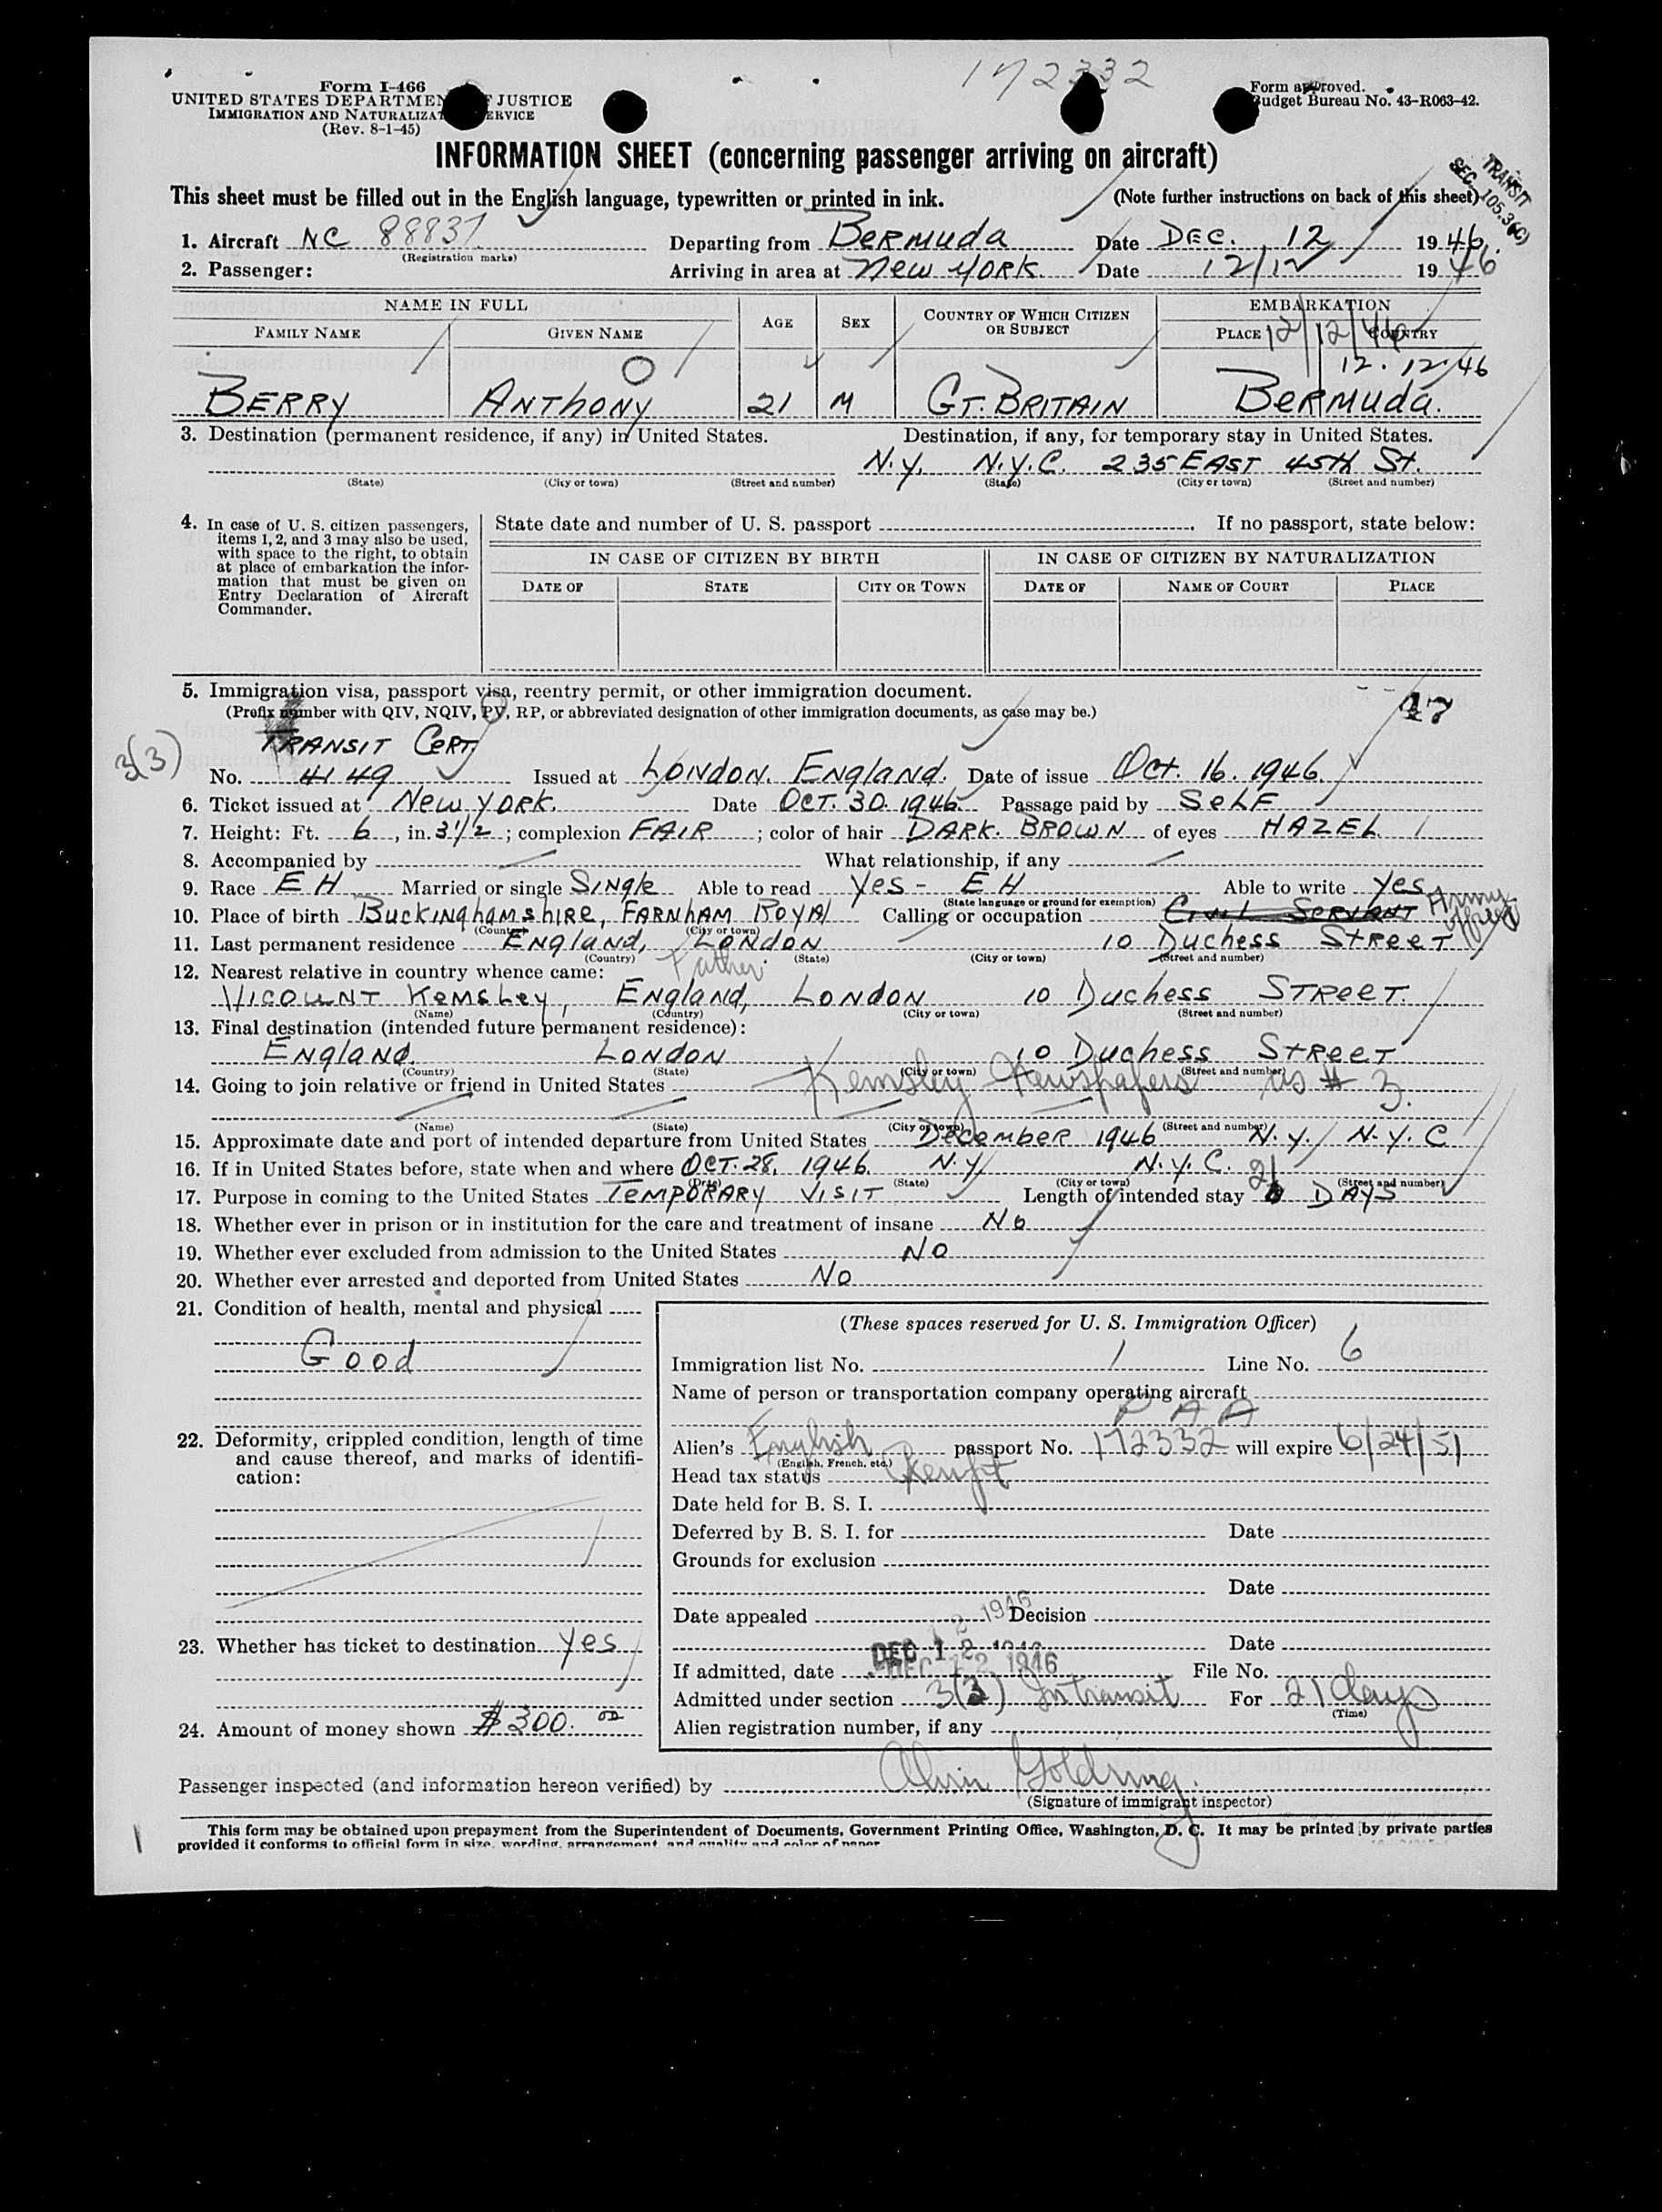 172332
Form I-466
UNITED STATES DEPARTMEN F JUSTICE
IMMIGRATION AND NATURALIZAT ERVICE
(Rev. 8-1-45)
Form approved.
Budget Bureau No. 43-R063-42.
INFORMATION SHEET (concerning passenger arriving on aircraft)
TRANSIT
SEC. 105.3(c)
This sheet must be filled out in the English language, typewritten or printed in ink. (Note further instructions on back of this sheet)
1. Aircraft NC 88837 Departing from BERMUDA Date DEC. 12 1946.
(Registration marks)
2. Passenger: Arriving in area at NEW YORK. Date 12/12 1946
NAME IN FULL AGE SEX COUNTRY OF WHICH CITIZEN OR SUBJECT EMBARKATION
FAMILY NAME GIVEN NAME PLACE COUNTRY
12/12/46
12.12/46
BERRY ANTHONY 21 M GT. BRITAIN BERMUDA.
3. Destination (permanent residence, if any) in United States. Destination, if any, for temporary stay in United States.
N.Y. N.Y.C. 235 EAST 45TH St.
(State) (City or town) (Street and number) (State) (City or town) (Street and number)
4. In case of U. S. citizen passengers, items 1, 2, and 3 may also be used, with space to the right, to obtain at place of embarkation the information that must be given on Entry Declaration of Aircraft Commander.
State date and number of U. S. passport . If no passport, state below:
IN CASE OF CITIZEN BY BIRTH IN CASE OF CITIZEN BY NATURALIZATION
DATE OF STATE CITY OR TOWN DATE OF NAME OF COURT PLACE
5. Immigration visa, passport visa, reentry permit, or other immigration document.
(Prefix number with QIV, NQIV, PV, RP, or abbreviated designation of other immigration documents, as case may be.)
17
3(3) TRANSIT CERT
No. 4149 Issued at LONDON. ENGLAND. Date of issue Oct. 16. 1946.
6. Ticket issued at NEW YORK. Date OCT. 30. 1946. Passage paid by SELF
7. Height: Ft. 6, in. 3 1/2; complexion FAIR; color of hair DARK. BROWN of eyes HAZEL
8. Accompanied by What relationship, if any
9. Race EH Married or single Single Able to read Yes - EH Able to write Yes
(State language or ground for exemption)
10. Place of birth BUCKINGHAMSHIRE, FARNHAM ROYAL Calling or occupation CIVIL SERVANT Army Officer
(Country) (City or town)
11. Last permanent residence ENGLAND, LONDON 10 Duchess STREET
(Country) (State) (City or town) (Street and number)
12. Nearest relative in country whence came: Father
VICOUNT KEMSLEY, ENGLAND, LONDON 10 Duchess STREET.
(Name) (Country) (City or town) (Street and number)
13. Final destination (intended future permanent residence):
ENGLAND. LONDON 10 Duchess STREET
(Country) (State) (City or town) (Street and number)
14. Going to join relative or friend in United States Kemsley Newspapers as # 3.
(Name) (State) (City or town) (Street and number)
15. Approximate date and port of intended departure from United States DECEMBER 1946 N.Y. N.Y.C
16. If in United States before, state when and where OCT. 28. 1946. N.Y. N.Y.C.
(Date) (State) (City or town) (Street and number)
17. Purpose in coming to the United States TEMPORARY VISIT Length of intended stay 21 DAYS
18. Whether ever in prison or in institution for the care and treatment of insane No
19. Whether ever excluded from admission to the United States NO
20. Whether ever arrested and deported from United States No
21. Condition of health, mental and physical
Good
22. Deformity, crippled condition, length of time and cause thereof, and marks of identification:
23. Whether has ticket to destination Yes
24. Amount of money shown $300.00
(These spaces reserved for U. S. Immigration Officer)
Immigration list No. 1 Line No. 6
Name of person or transportation company operating aircraft
P A A
Alien's English passport No. 172332 will expire 6/24/51
(English, French, etc.)
Head tax status Exempt
Date held for B. S. I.
Deferred by B. S. I. for Date
Grounds for exclusion
Date
Date appealed Decision
Date
If admitted, date DEC 12 1946 File No.
Admitted under section 3(3) In transit For 21 days
(Time)
Alien registration number, if any
Passenger inspected (and information hereon verified) by
(Signature of immigrant inspector)
This form may be obtained upon prepayment from the Superintendent of Documents, Government Printing Office, Washington, D. C. It may be printed by private parties
provided it conforms to official form in size, wording, arrangement, and quality and color of paper